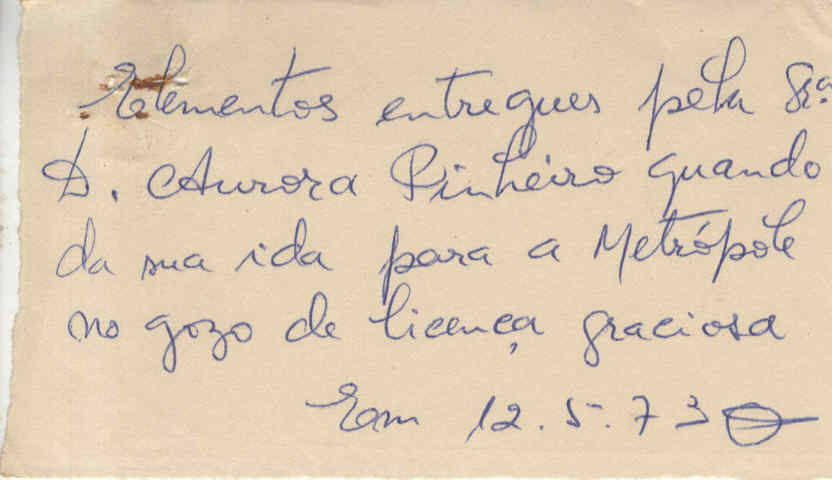 Elementos entregues pela Srª
D. Aurora Pinheiro quando
da sua ida para a Metrópole
no gozo de licença graciosa
Em 12.5.73